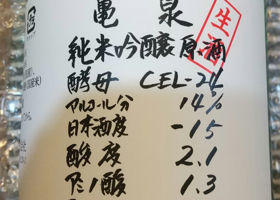 亀泉
生酒
純米吟醸原酒
酵母 CEL-24
アルコール分 14%
日本酒度 -15
酸度 2.1
アミノ酸 1.3